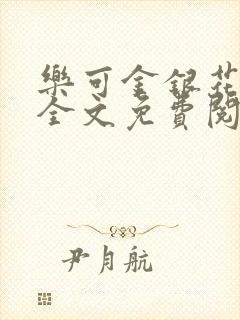 樂可金銀花
全文免費閱
尹月航